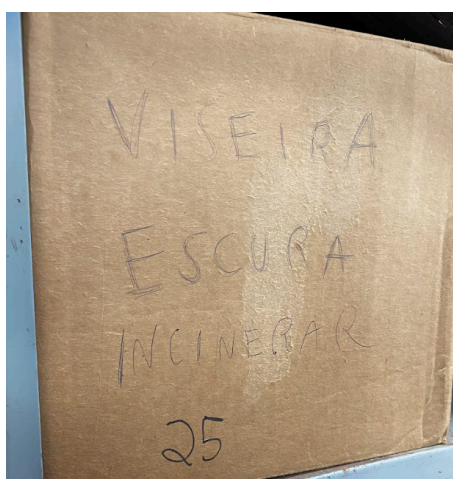 VISEIRA
ESCURA
INCINERAR
25